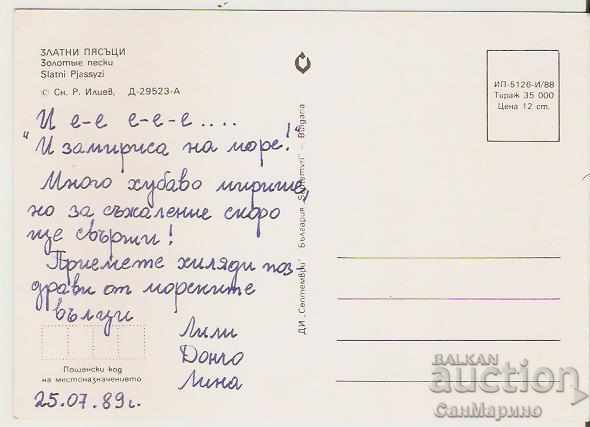 ЗЛАТНИ ПЯСЪЦИ
Золотые пески
Slatni Pjassyzi
© Сн. Р. Илиев, Д-29523-А
И е-е е-е-е....
"И замириса на море!"
Много хубаво мирише,
но за съжаление скоро
ще свърши!
Приемете хиляди поз-
драви от морските
вълци
Лили
Донго
Лина
Пощенски код
на местоназначението
25.07.89г.
ДИ „Септември" България „Septemvri" — Bulgaria
ИП-5126-И/88
Тираж 35 000
Цена 12 ст.
BALKAN
auction
СанМарино